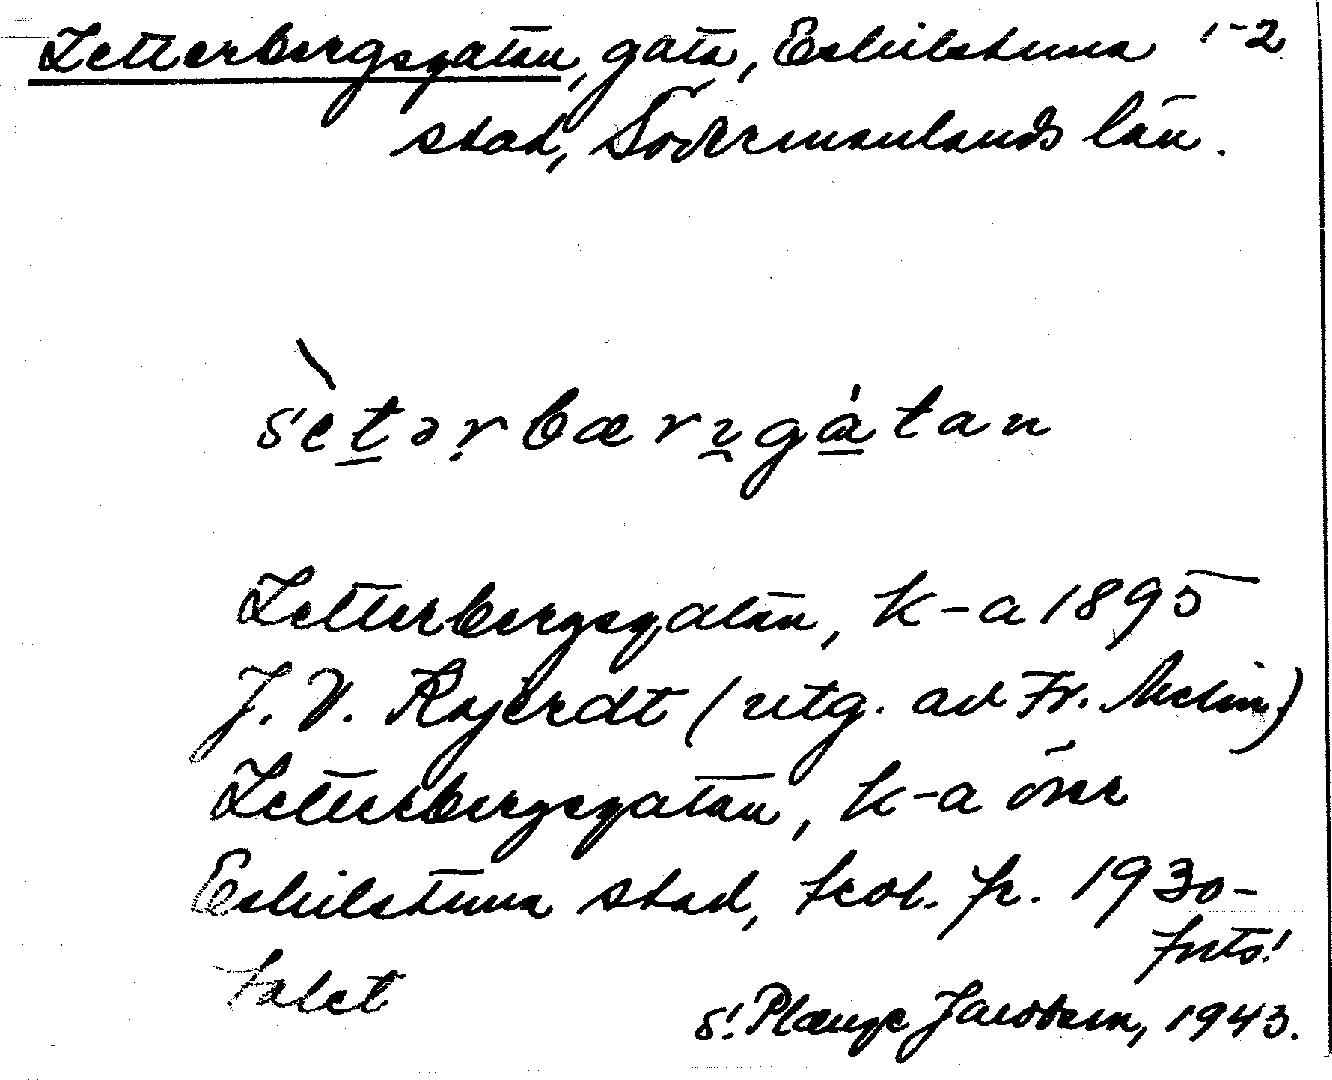 Zetterbergsgatan, gata, Eskilstuna 1-2
stad, Södermanlands län.
sètərbærɿgátan
Zetterbergsgatan, k-a 1895
J. V. Ryjerdt (utg. av Fr. Melin)
Zetterbergsgatan, k-a över
Eskilstuna stad, trol. fr. 1930-
talet
forts!
S. Plænge Jacobson, 1943.